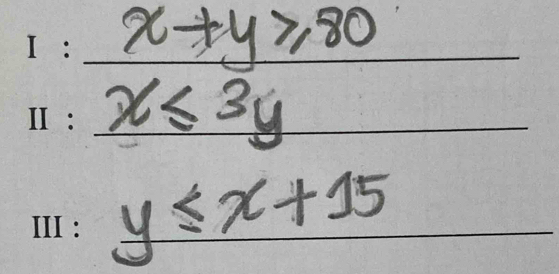 I : x+y⩾80
II : x≤3y
III : y≤x+15